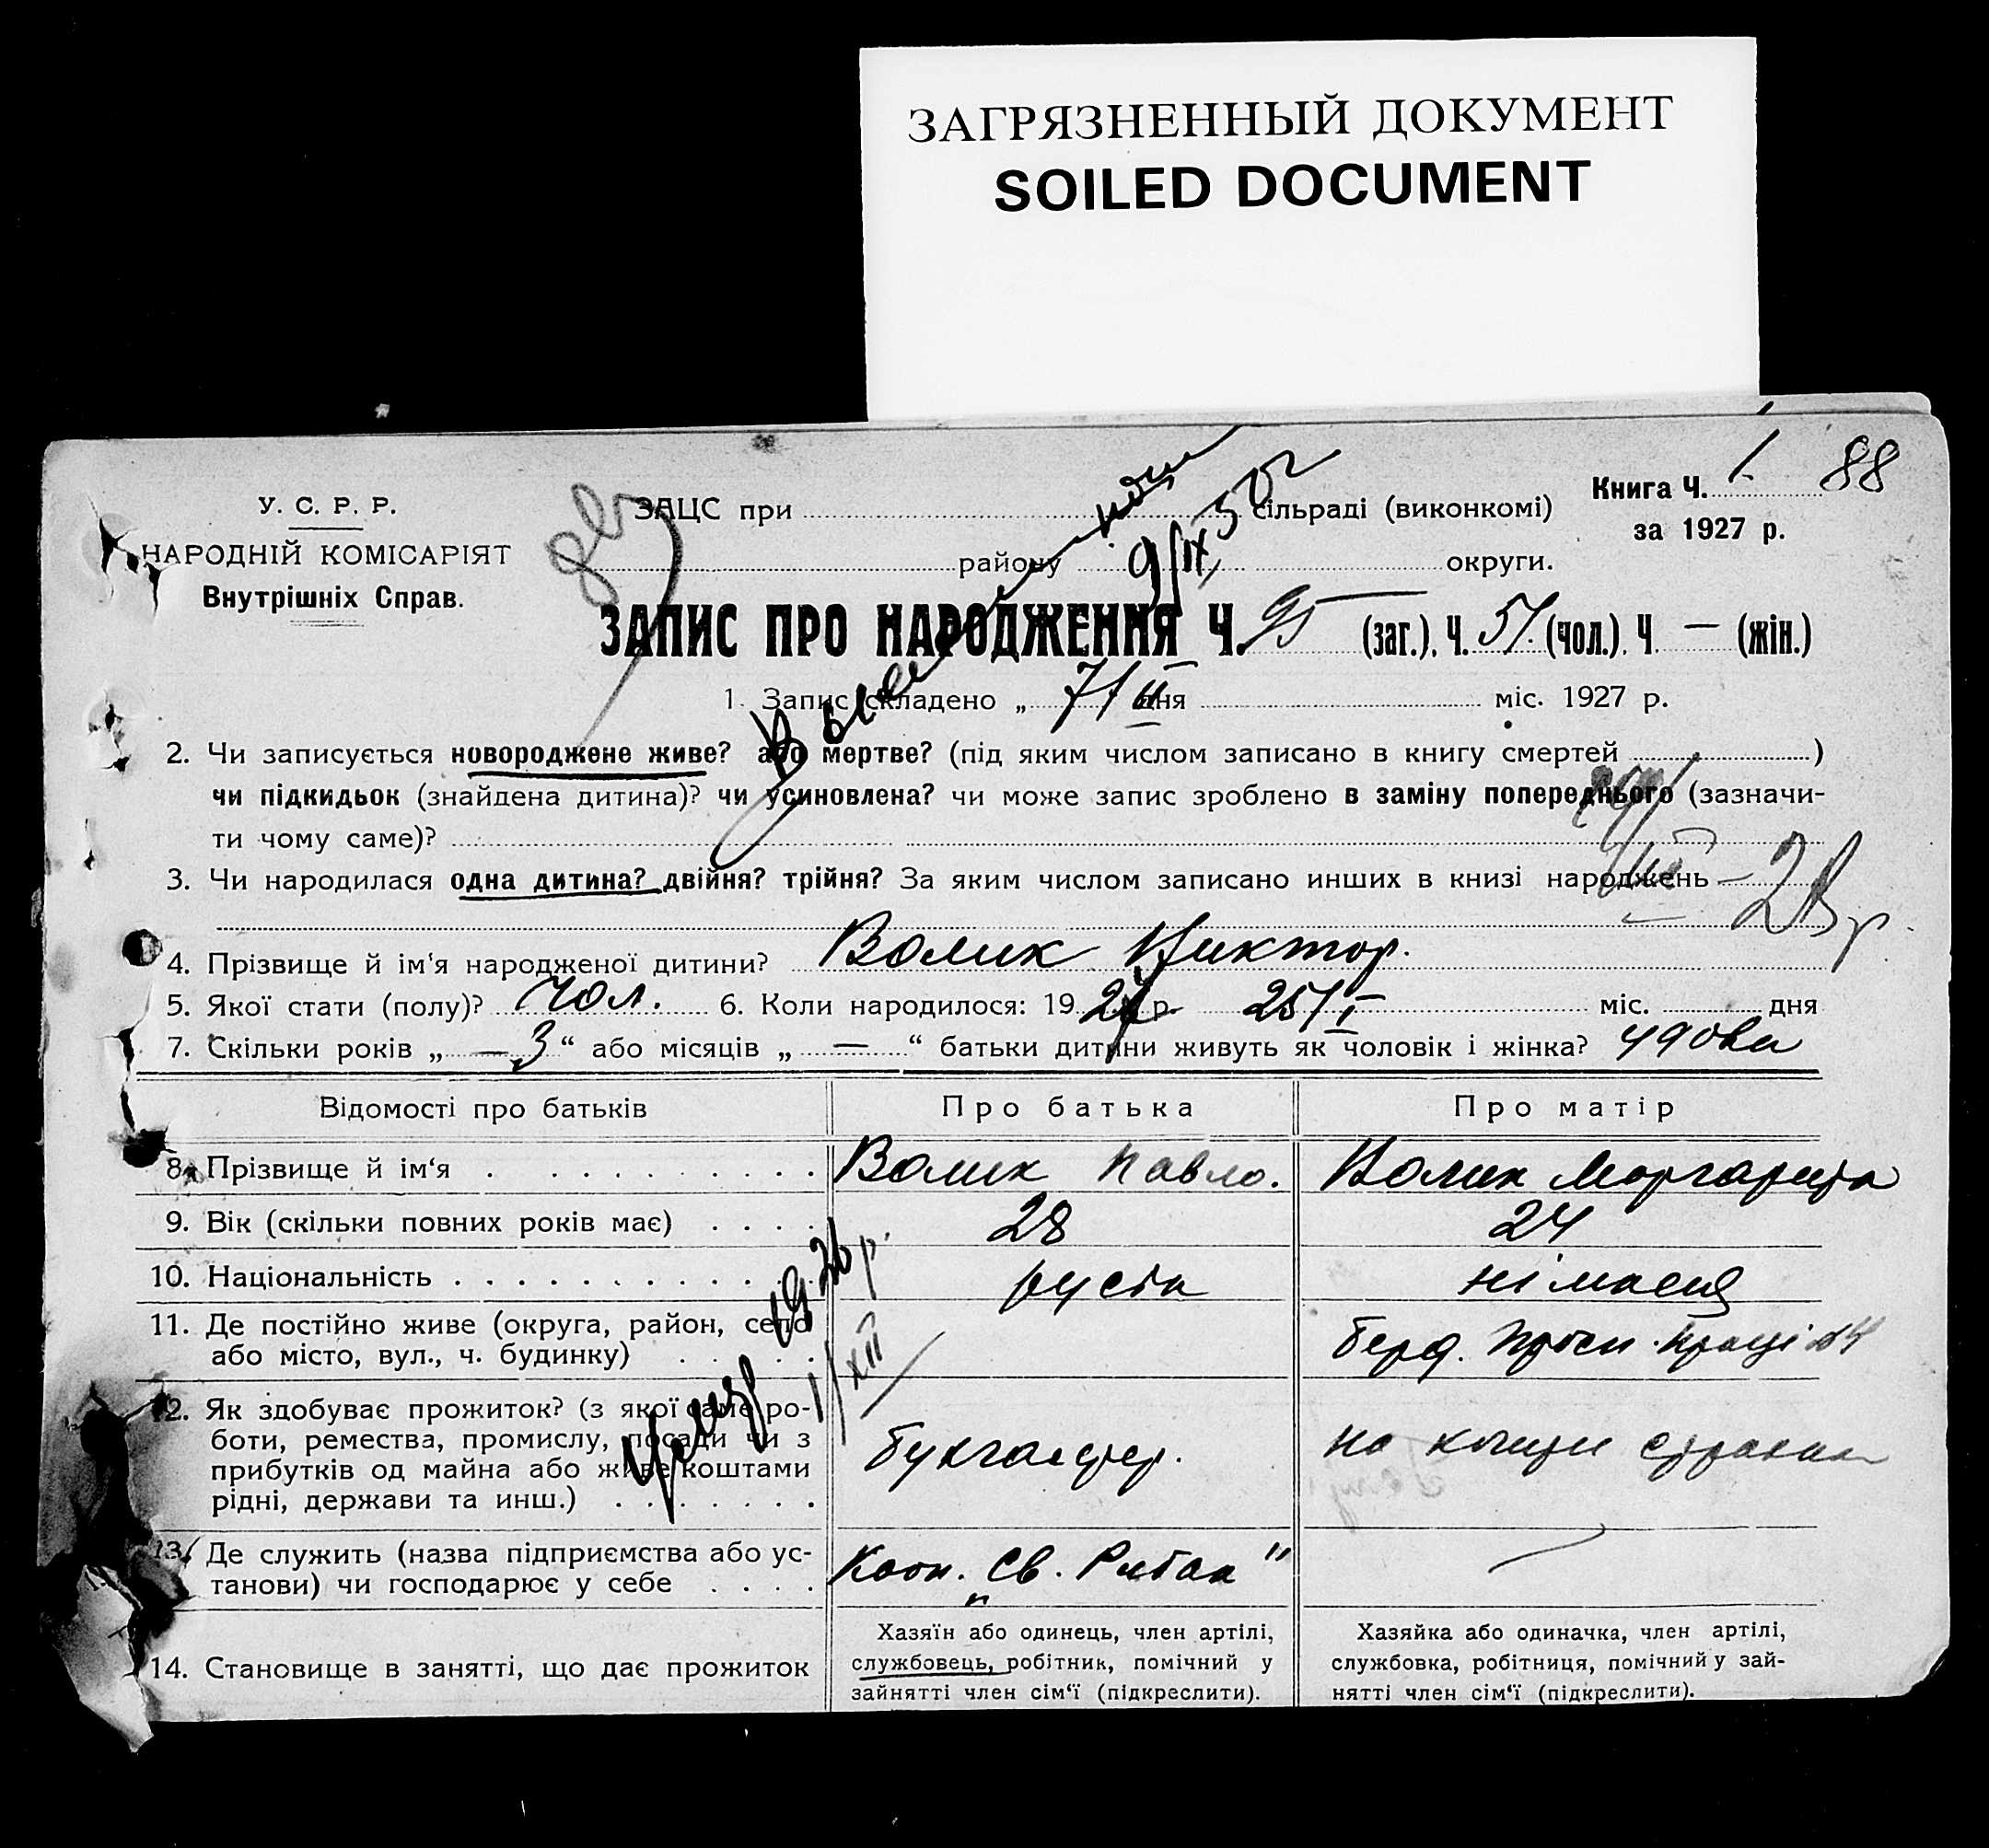 ЗАГРЯЗНЕННЫЙ ДОКУМЕНТ
SOILED DOCUMENT
88
У. С. Р. Р.
НАРОДНІЙ КОМІСАРІЯТ
Внутрішніх Справ.
ЗАЦС при сільраді (виконкомі)
району округи.
Книга Ч. 1
за 1927 р.
9/IX 50 г
ЗАПИС ПРО НАРОДЖЕННЯ Ч. 95 (заг.). Ч. 51. (чол.). Ч. — (жін.)
1. Запис складено „ 7/II дня міс. 1927 р.
2. Чи записується новороджене живе? або мертве? (під яким числом записано в книгу смертей )
чи підкидьок (знайдена дитина)? чи усиновлена? чи може запис зроблено в заміну попереднього (зазначи-
ти чому саме)?
3. Чи народилася одна дитина? двійня? трійня? За яким числом записано инших в книзі народжень
28 р.
4. Прізвище й ім'я народженої дитини? Волик Виктор.
5. Якої стати (полу)? чол. 6. Коли народилося: 19 27 р. 25/I міс. дня
7. Скільки років „ — 3 “ або місяців „ — “ батьки дитини живуть як чоловік і жінка?
Відомості про батьків Про батька Про матір
8. Прізвище й ім‘я Волик Павло. Волик Маргарита
9. Вік (скільки повних років має) 28 24
10. Національність руськ німкеня
11. Де постійно живе (округа, район, село
або місто, вул., ч. будинку) Берд. Просп. Праці 24
1/XII 1926 р.
12. Як здобуває прожиток? (з якої саме ро-
боти, ремества, промислу, посади чи з
прибутків од майна або живе коштами
рідні, держави та инш.) бухгалтер. на кошти
13. Де служить (назва підприємства або ус-
танови) чи господарює у себе Кооп. „Св. Рибак"
14. Становище в занятті, що дає прожиток
Хазяїн або одинець, член артілі,
службовець, робітник, помічний у
зайнятті член сім‘ї (підкреслити).
Хазяйка або одиначка, член артілі,
службовка, робітниця, помічний у зай-
нятті член сім‘ї (підкреслити).